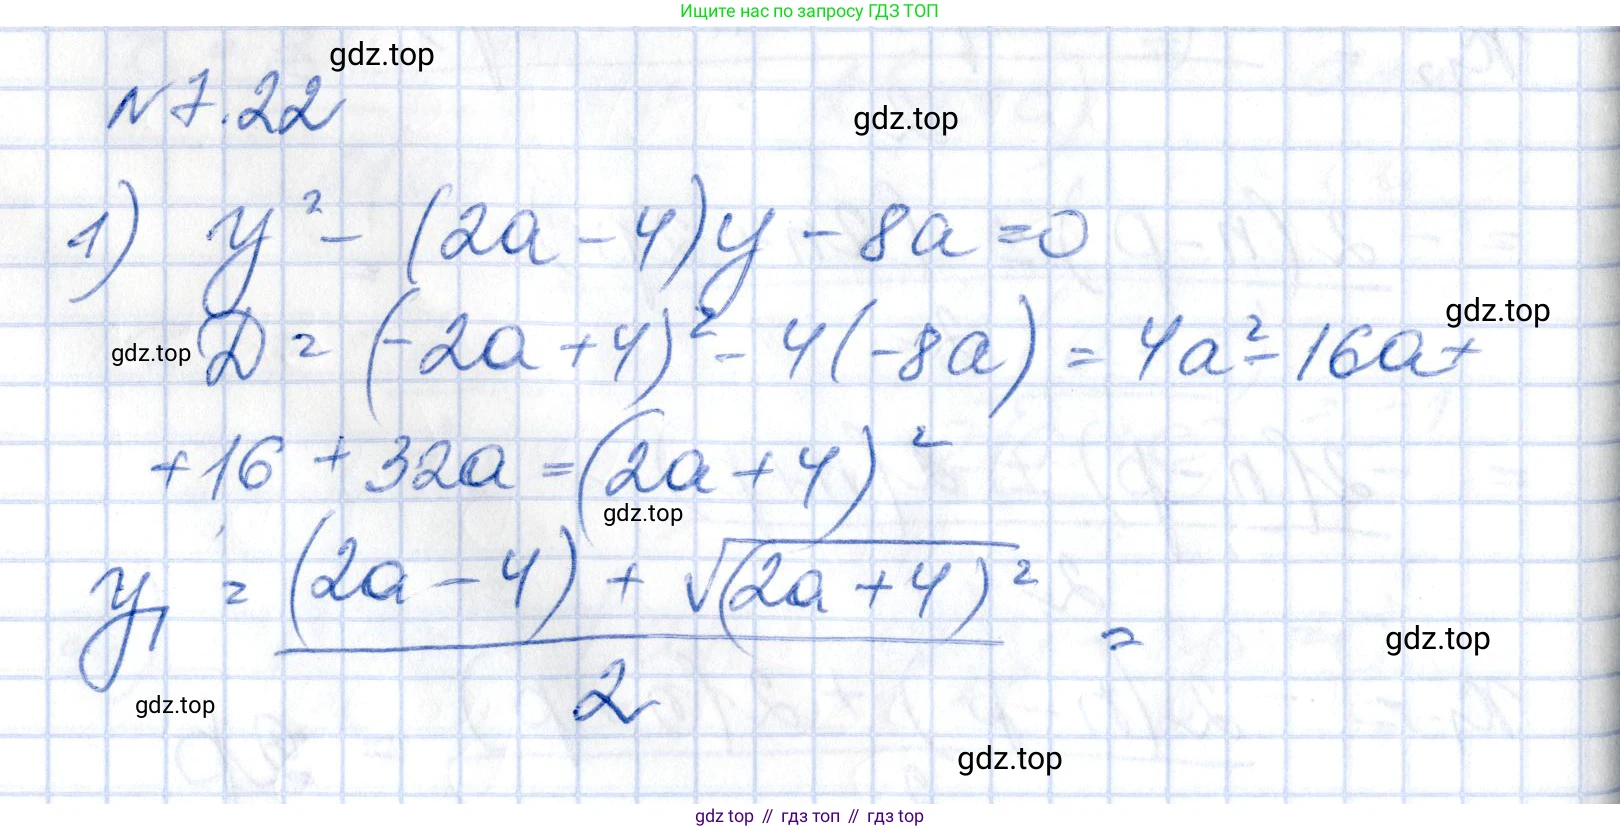 Ищите нас по запросу ГДЗ ТОП
gdz.top
N 7.22
gdz.top
1) y² - (2a - 4)y - 8a = 0
gdz.top
gdz.top
D = (-2a + 4)² - 4(-8a) = 4a² - 16a +
+ 16 + 32a = (2a + 4)²
gdz.top
y₁ = ((2a - 4) + √(2a + 4)²) / 2 =
gdz.top
gdz.top
gdz.top
gdz.top // гдз топ // гдз top